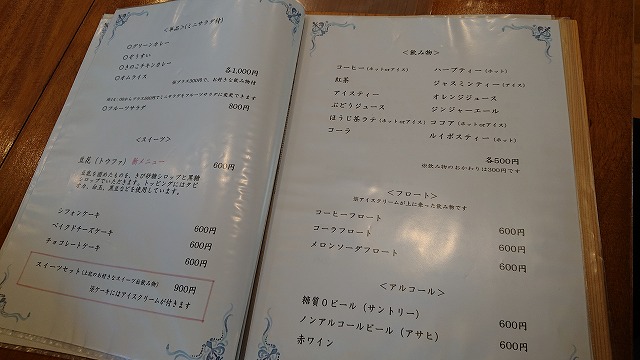 <単品>(ミニサラダ付)
○グリーンカレー
○ぞうすい
○きのこチキンカレー
○オムライス
各1,000円
※プラス300円で、お好きな飲み物付
○フルーツサラダ
800円
<スイーツ>
豆花(トウファ)新メニュー
600円
豆乳を固めたものを、きび砂糖シロップと黒糖
シロップでいただきます。トッピングにはタピ
オカ、白玉、黒豆などを使用しています。
シフォンケーキ
600円
ベイクドチーズケーキ
600円
チョコレートケーキ
600円
スイーツセット(上記のお好きなスイーツ+お飲み物)
900円
※ケーキにはアイスクリームが付きます
<飲み物>
コーヒー(ホットorアイス) ハーブティー(ホット)
紅茶 ジャスミンティー(アイス)
アイスティー オレンジジュース
ぶどうジュース ジンジャーエール
ほうじ茶ラテ(ホットorアイス) ココア(ホットorアイス)
コーラ ルイボスティー(ホット)
各500円
※飲み物のおかわりは300円です
<フロート>
※アイスクリームが上に乗った飲み物です
コーヒーフロート 600円
コーラフロート 600円
メロンソーダフロート 600円
<アルコール>
糖質0ビール(サントリー) 600円
ノンアルコールビール(アサヒ) 600円
赤ワイン